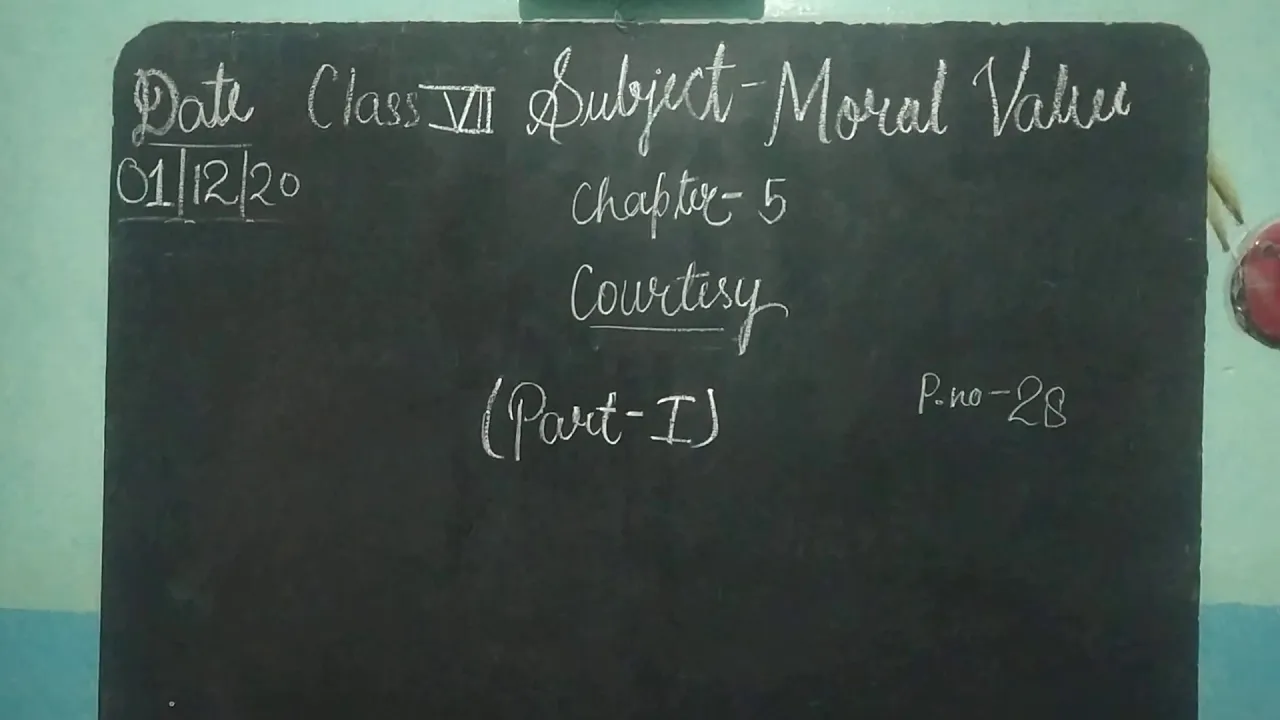 Date Class VII Subject - Moral Value
01|12|20
Chapter - 5
Courtesy
(Part - I)
P.no - 28